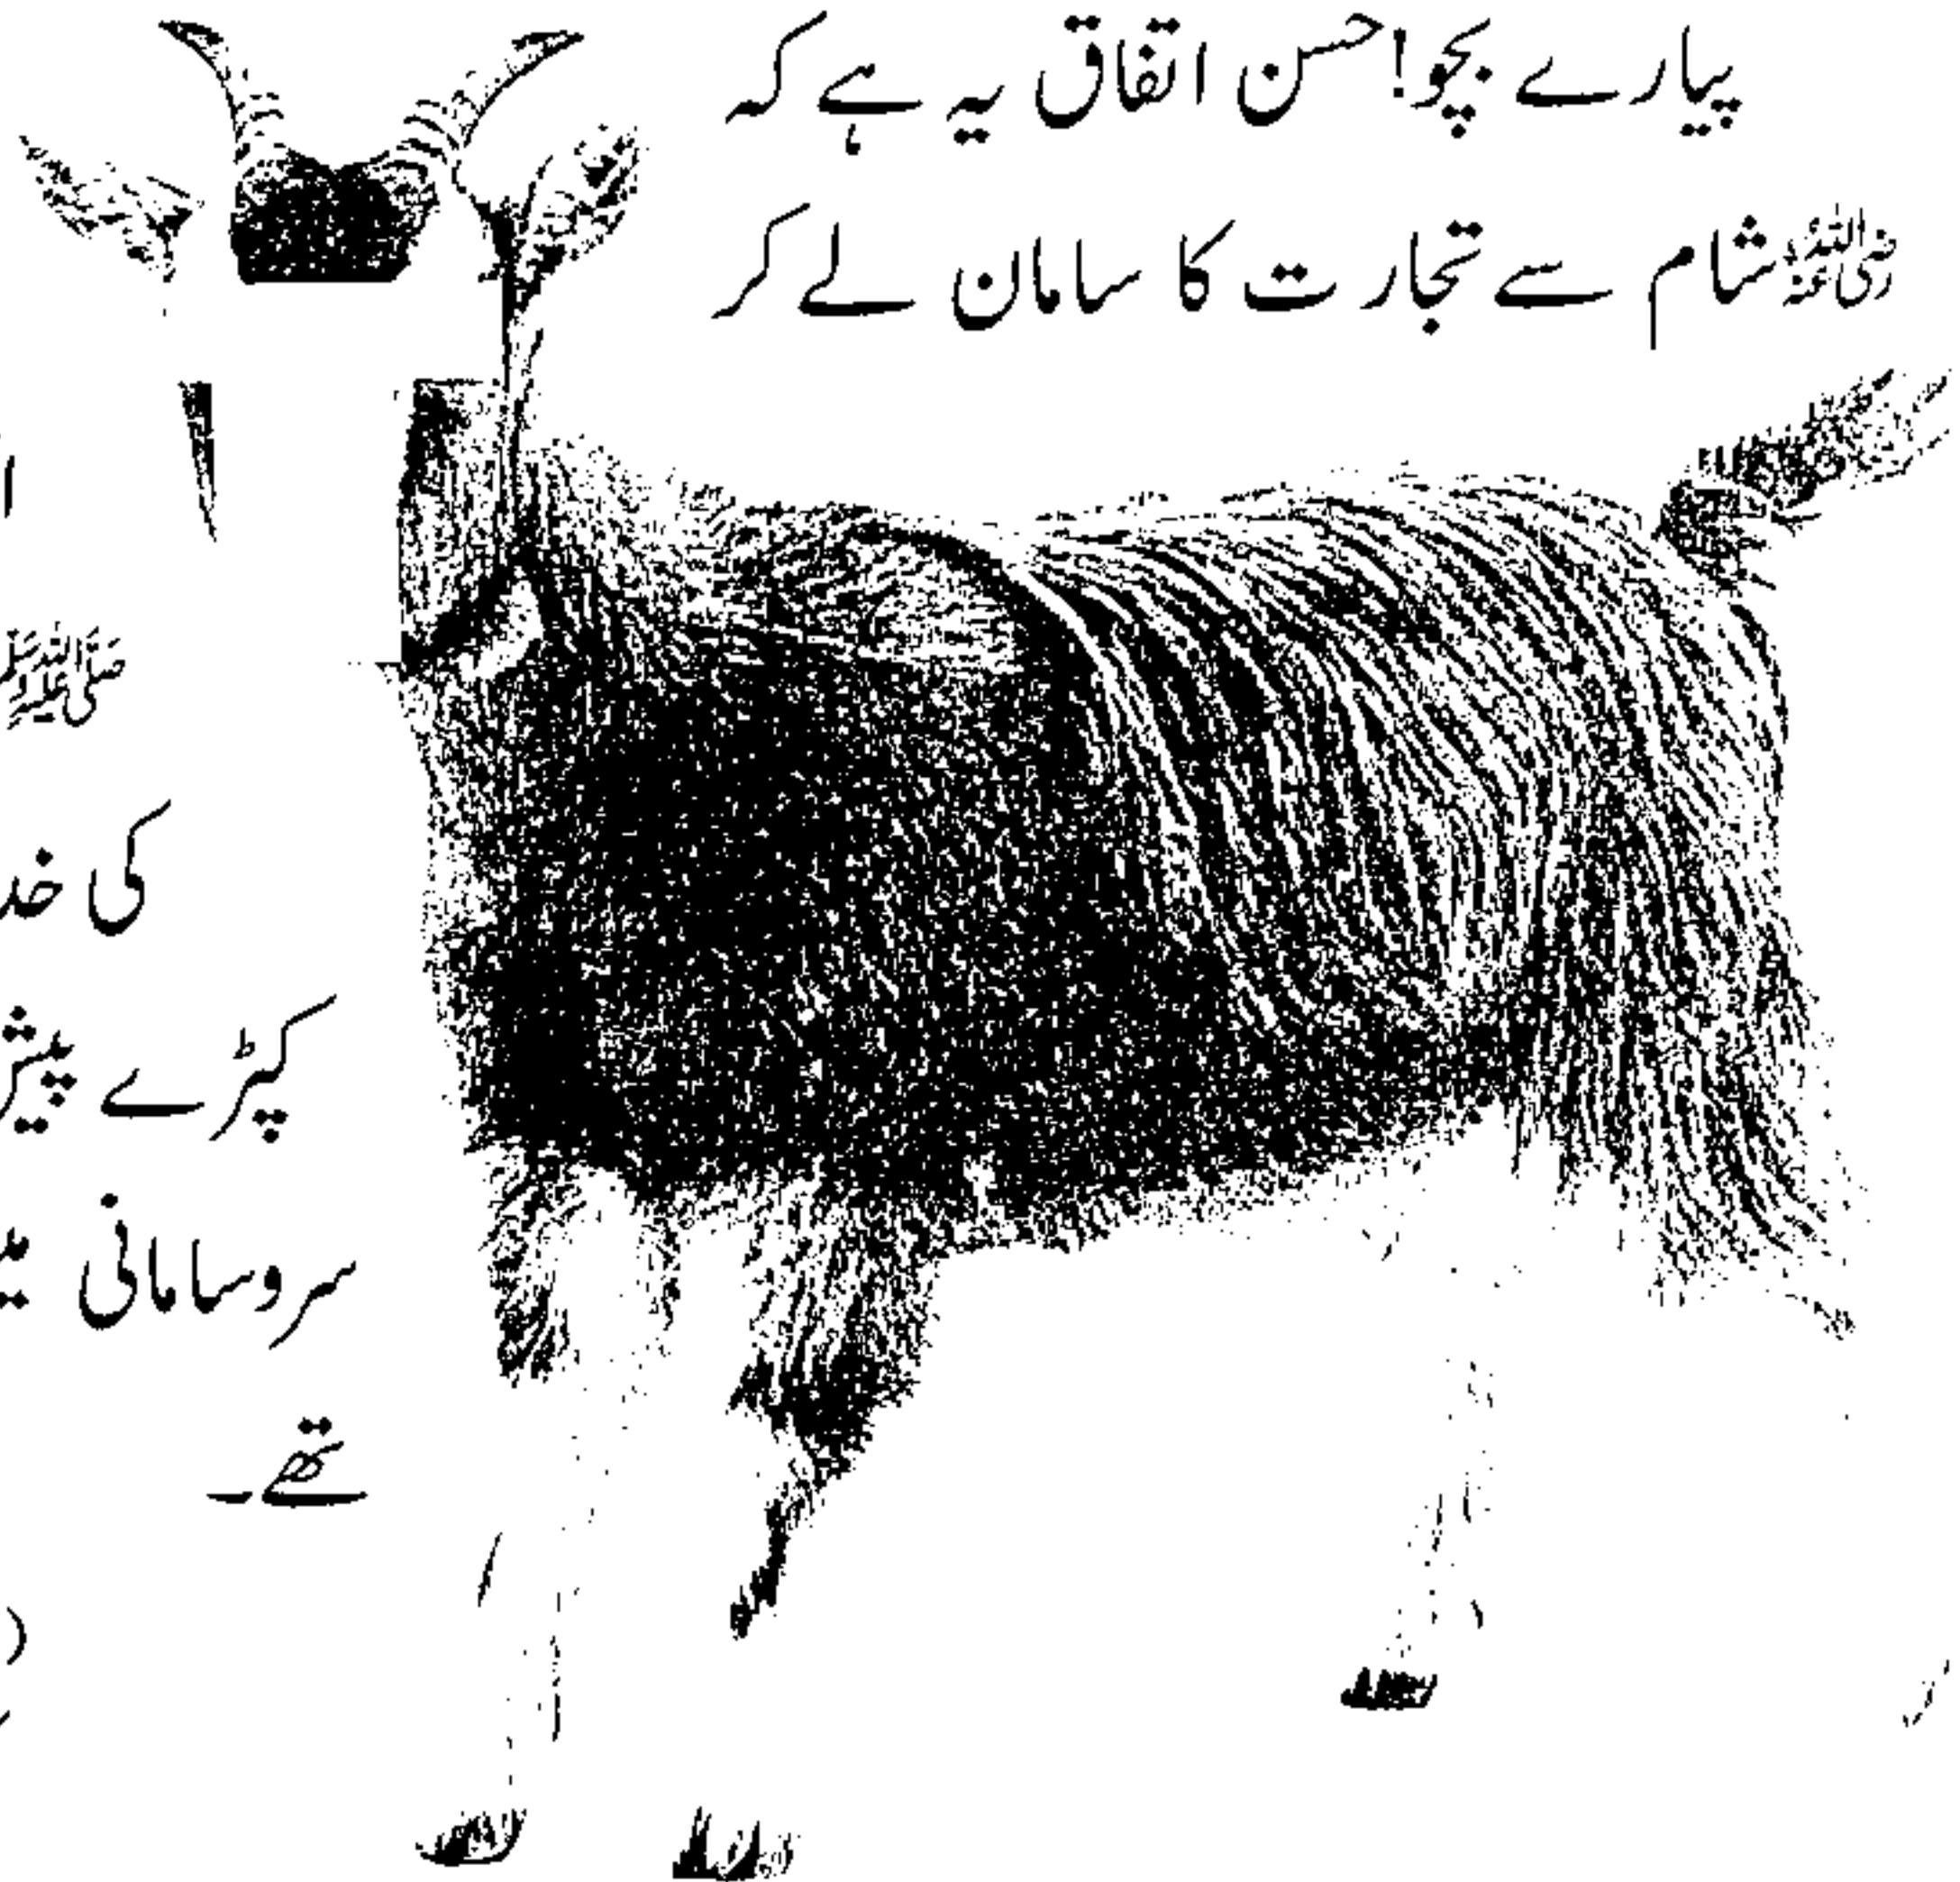 پیارے بچو! حسن اتفاق یہ ہے کہ
رضی اللہ عنہ شام سے تجارت کا سامان لے کر
صلی اللہ علیہ وسلم
کی
کپڑے
سروسامانی
تھے۔